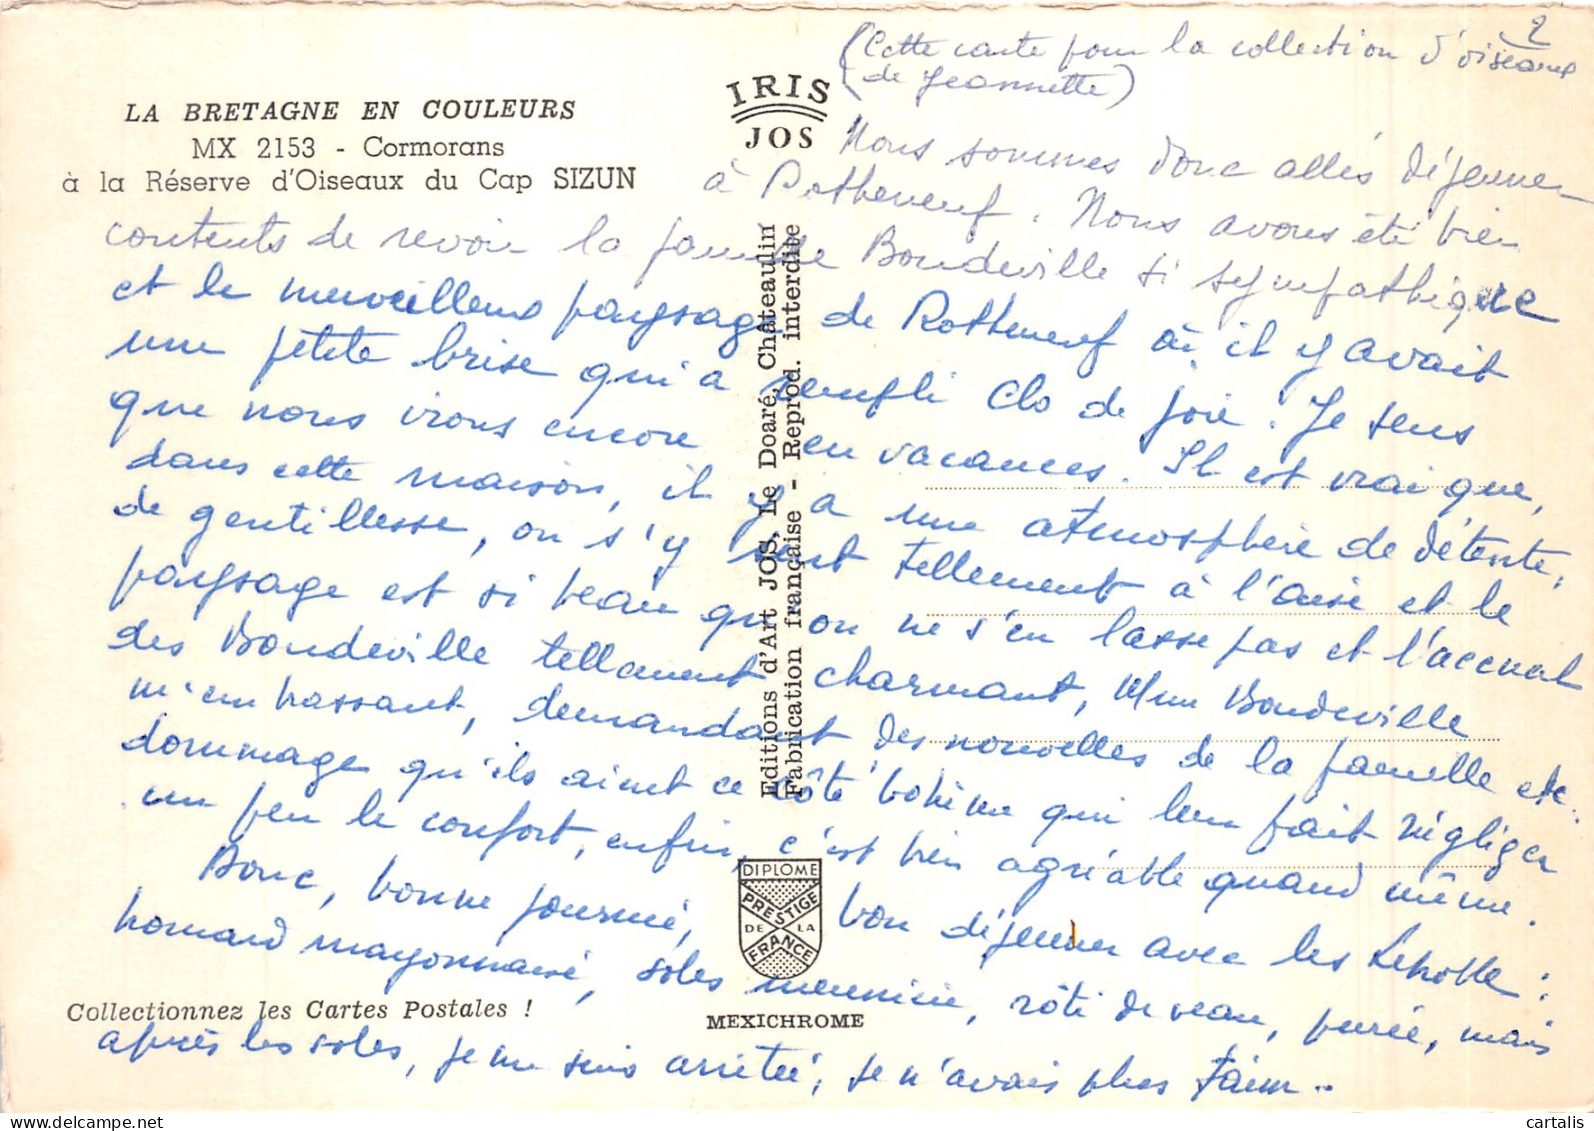 2
(Cette carte pour la collection d'oiseaux
(de Jeannette)
IRIS
JOS
LA BRETAGNE EN COULEURS
MX 2153 - Cormorans
à la Réserve d'Oiseaux du Cap SIZUN
Nous sommes donc allés déjeuner
à Rotheneuf. Nous avons été bien
contents de revoir la famille Boudeville si sympathique
et le merveilleux paysage de Rotheneuf où il y avait
une petite brise qui a rempli Clo de joie. Je sens
que nous irons encore en vacances. Il est vrai que,
dans cette maison, il y a une atmosphère de détente,
de gentillesse, on s'y sent tellement à l'aise et le
paysage est si beau qu'on ne s'en lasse pas et l'accueil
des Boudeville tellement charmant, Mme Boudeville
m'embrassant, demandant des nouvelles de la famille etc..
dommage qu'ils aiment ce côté bohème qui leur fait négliger
un peu le confort, enfin, c'est bien agréable quand même.
Donc, bonne journée, bon déjeuner avec les :
homard mayonnaise, soles meunière, rôti de veau, purée, mais
après les soles, je me suis arrêtée, je n'avais plus faim..
Editions d'Art JOS, Le Doaré, Châteaulin
Fabrication française - Reprod. interdite
DIPLOME
PRESTIGE
DE LA
FRANCE
Collectionnez les Cartes Postales !
MEXICHROME
cartalis
www.delcampe.net